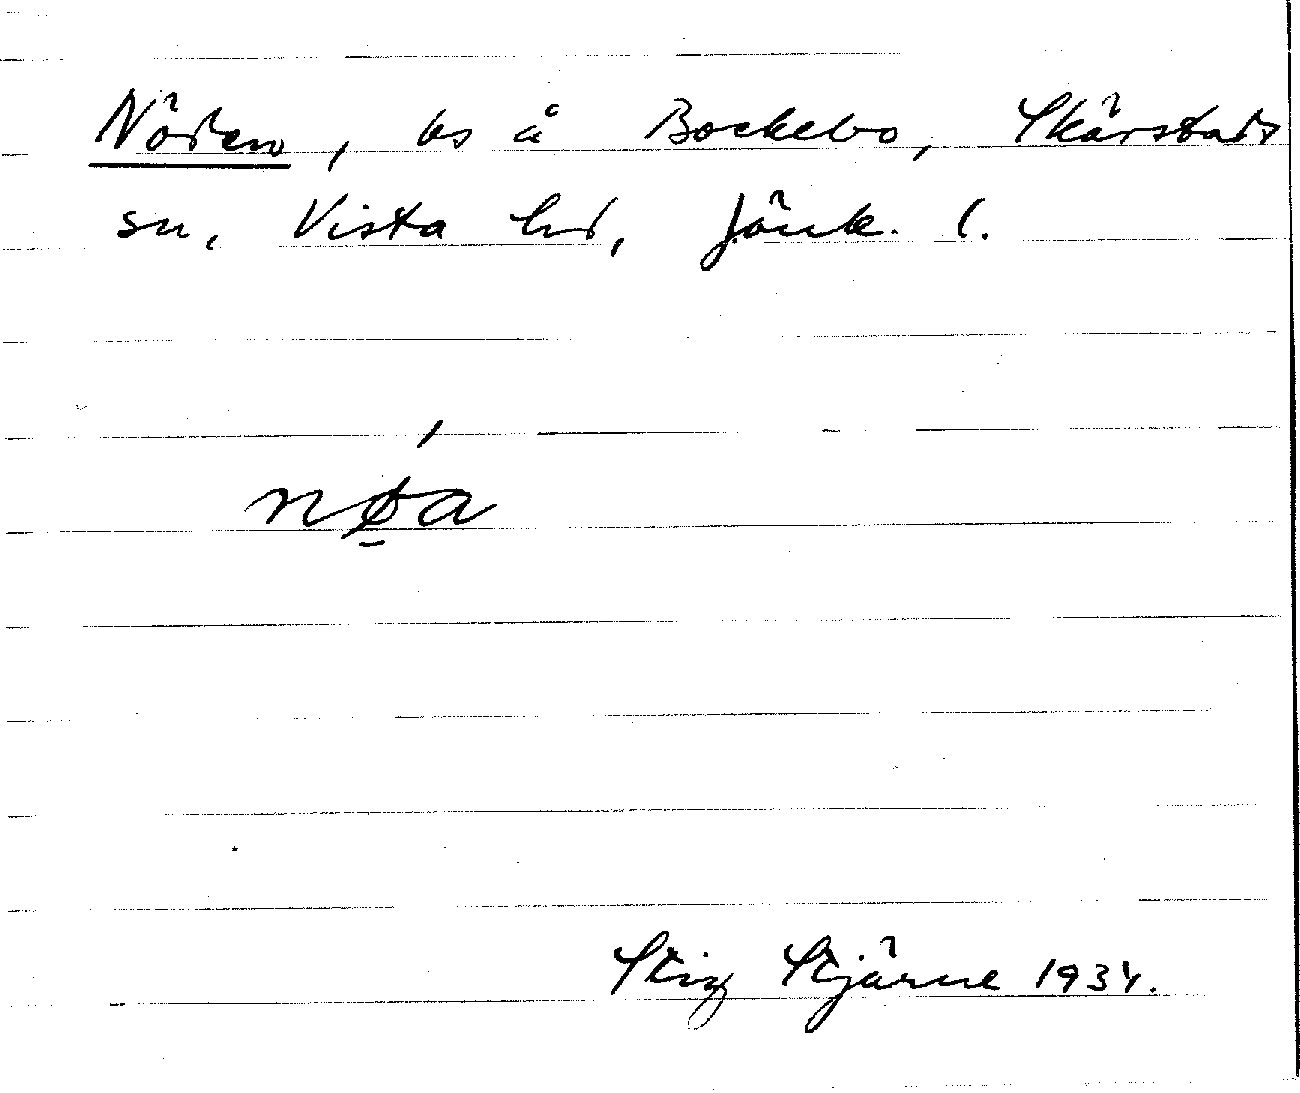 Nöden, ls å Bockebo, Skärstads
sn, Vista hd, Jönk. l.
nǿ̱a
Stig Stjärne 1934.